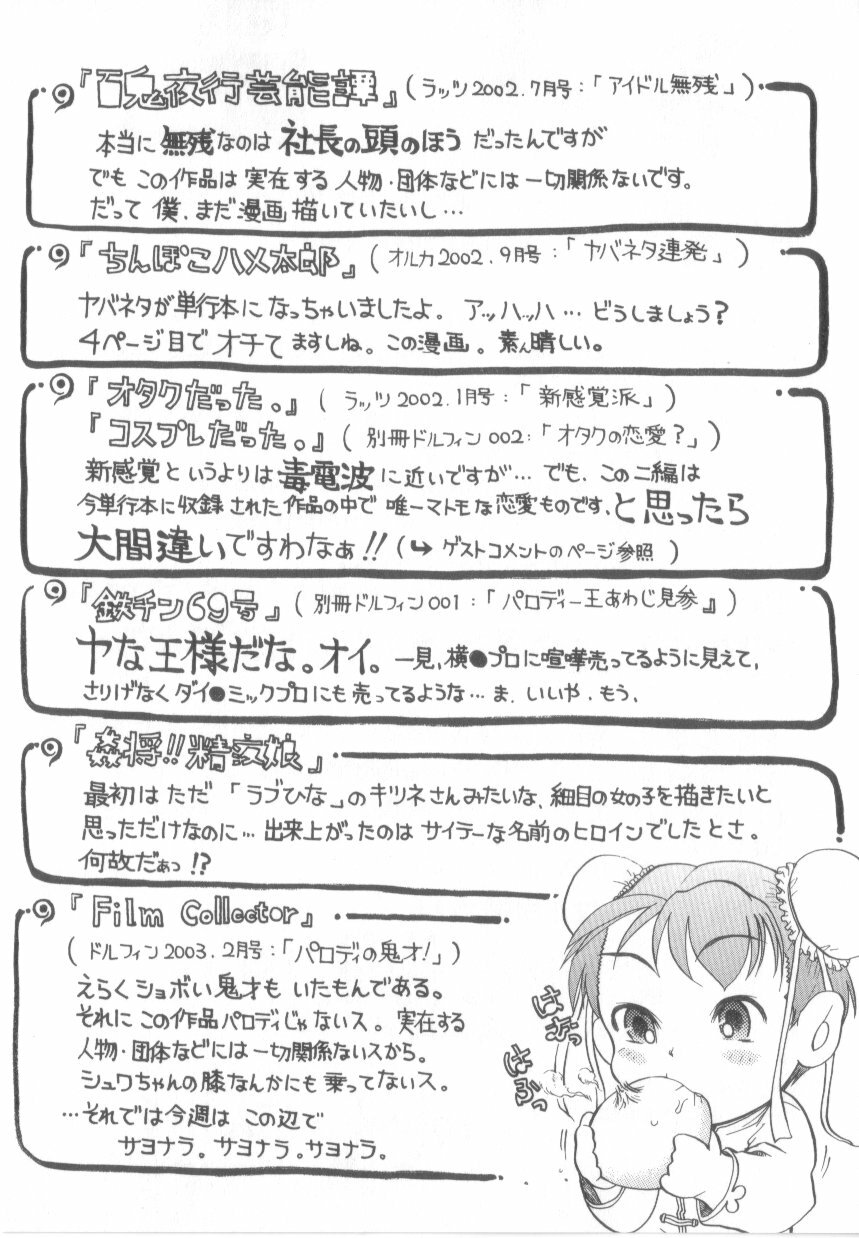 『百鬼夜行芸能譚』(ラッツ2002.7月号:「アイドル無残」)
本当に無残なのは社長の頭のほうだったんですが
でもこの作品は実在する人物・団体などには一切関係ないです。
だって僕、まだ漫画描いていたいし…
『ちんぽこハメ太郎』(オルカ2002.9月号:「ヤバネタ連発」)
ヤバネタが単行本になっちゃいましたよ。アッハッハ…どうしましょう?
4ページ目でオチてますしね。この漫画。素ん晴しい。
『オタクだった。』(ラッツ2002.1月号:「新感覚派」)
『コスプレだった。』(別冊ドルフィン002:「オタクの恋愛?」)
新感覚というよりは毒電波に近いですが…でも、この二編は
今単行本に収録された作品の中で唯一マトモな恋愛ものです、と思ったら
大間違いですわなぁ!!(↪ゲストコメントのページ参照)
『鉄チン69号』(別冊ドルフィン001:「パロディー王あわじ見参』)
ヤな王様だな。オイ。一見、横●プロに喧嘩売ってるように見えて、
さりげなくダイ●ミックプロにも売ってるような…ま、いいや、もう、
『姦将!!精液娘』
最初はただ「ラブひな」のキツネさんみたいな、細目の女の子を描きたいと
思っただけなのに…出来上がったのはサイテーな名前のヒロインでしたとさ。
何故だぁっ!?
『Film Collector』
(ドルフィン2003.2月号:「パロディの鬼才!」)
えらくショボい鬼才もいたもんである。
それにこの作品パロディじゃないス。実在する
人物・団体などには一切関係ないスから。
シュワちゃんの膝なんかにも乗ってないス。
…それでは今週はこの辺で
サヨナラ。サヨナラ。サヨナラ。
はむっ
はふっ